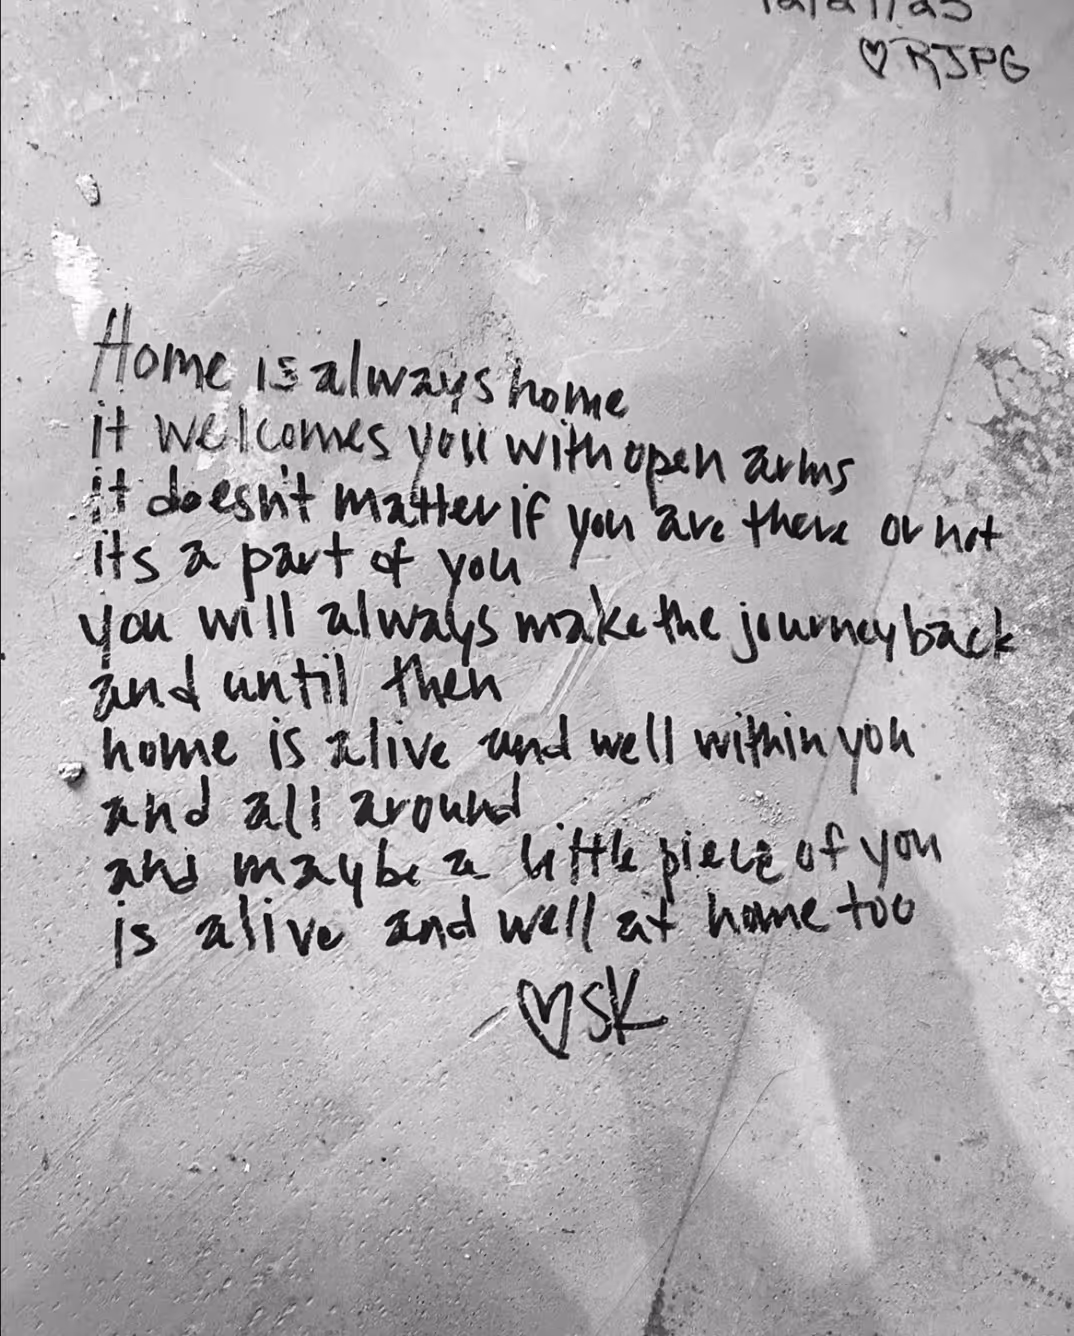 ♡RJPG
Home is always home
it welcomes you with open arms
it doesn't matter if you are there or not
its a part of you
you will always make the journey back
and until then
home is alive and well within you
and all around
and maybe a little piece of you
is alive and well at home too
♡SK